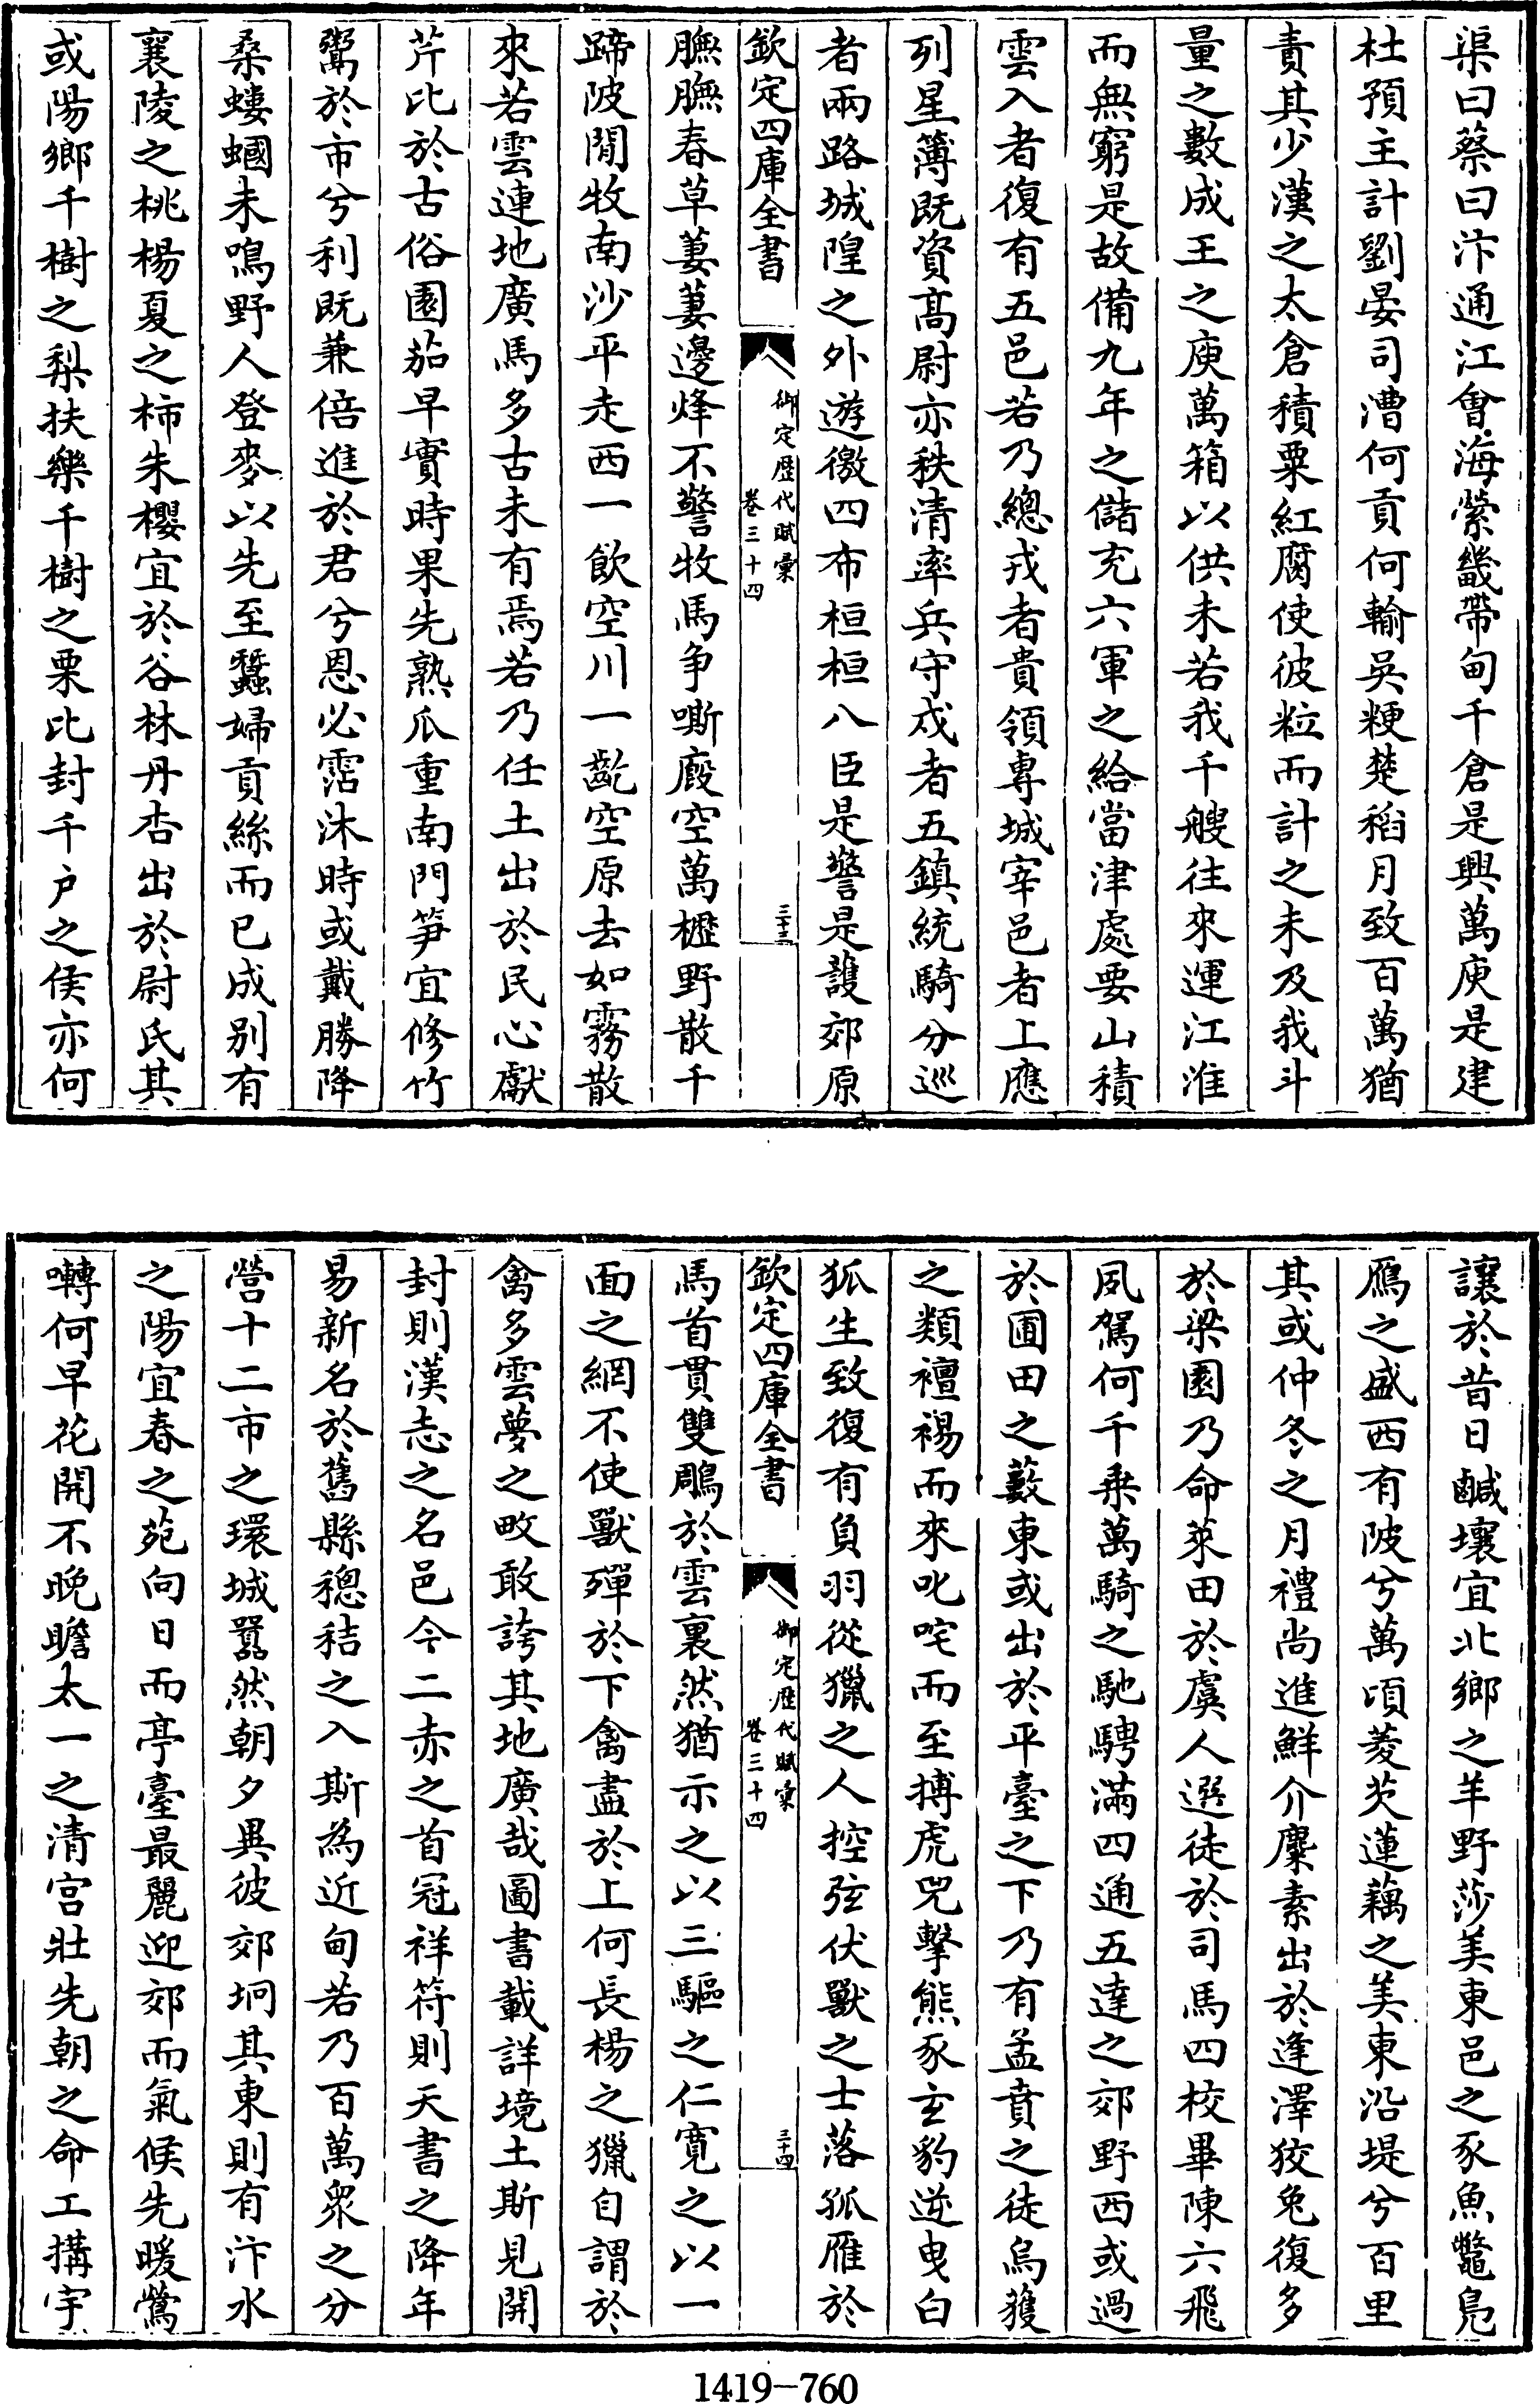 渠曰蔡曰汴通江會海縈畿帶甸千倉是興萬庾是建
杜預主計劉晏司漕何貢何輸吳粳楚稻月致百萬猶
責其少漢之太倉積粟紅腐使彼粒而計之未及我斗
量之數成王之庾萬箱以供未若我千艘往來運江淮
而無窮是故備九年之儲充六軍之給當津處要山積
雲入者復有五邑若乃總戎者貴領專城宰邑者上應
列星簿既資高尉亦秩清率兵守戍者五鎮統騎分巡
者兩路城隍之外遊徼四布桓桓八臣是警是護郊原
欽定四庫全書
御定歷代賦彙
卷三十四
三十三
膴膴春草萋萋邊烽不警牧馬争嘶廄空萬櫪野散千
蹄陂閒牧南沙平走西一飲空川一齕空原去如霧散
來若雲連地廣馬多古未有焉若乃任土出於民心獻
芹比於古俗園茄早實時果先熟瓜重南門笋宜修竹
鬻於市兮利既兼倍進於君兮恩必霑沐時或戴勝降
桑螻蟈未鳴野人登麥以先至蠶婦貢絲而已成别有
襄陵之桃楊夏之柿朱櫻宜於谷林丹杏出於尉氏其
或陽鄉千樹之梨扶樂千樹之栗比封千户之侯亦何
讓於昔日鹹壤宜北鄉之羊野莎美東邑之豕魚鼈凫
鴈之盛西有陂兮萬頃菱芡蓮藕之美東沿堤兮百里
其或仲冬之月禮尚進鮮介麋素出於逢澤狡兔復多
於梁園乃命萊田於虞人選徒於司馬四校畢陳六飛
夙駕何千乗萬騎之馳騁滿四通五達之郊野西或過
於圃田之藪東或出於平臺之下乃有孟賁之徒烏獲
之類襢裼而來叱咤而至搏虎兕擊熊豕玄豹逆曳白
狐生致復有負羽從獵之人控弦伏獸之士落孤雁於
欽定四庫全書
御定歷代賦彙
卷三十四
三十四
馬首貫雙鵰於雲裏然猶示之以三驅之仁寛之以一
面之網不使獸殫於下禽盡於上何長楊之獵自謂於
禽多雲夢之畋敢誇其地廣哉圖書載詳境土斯見開
封則漢志之名邑今二赤之首冠祥符則天書之降年
易新名於舊縣穗秸之入斯為近甸若乃百萬衆之分
營十二市之環城囂然朝夕異彼郊坰其東則有汴水
之陽宜春之苑向日而亭臺最麗迎郊而氣候先暖鶯
囀何早花開不晚瞻太一之清宫壯先朝之命工搆宇
1419-760